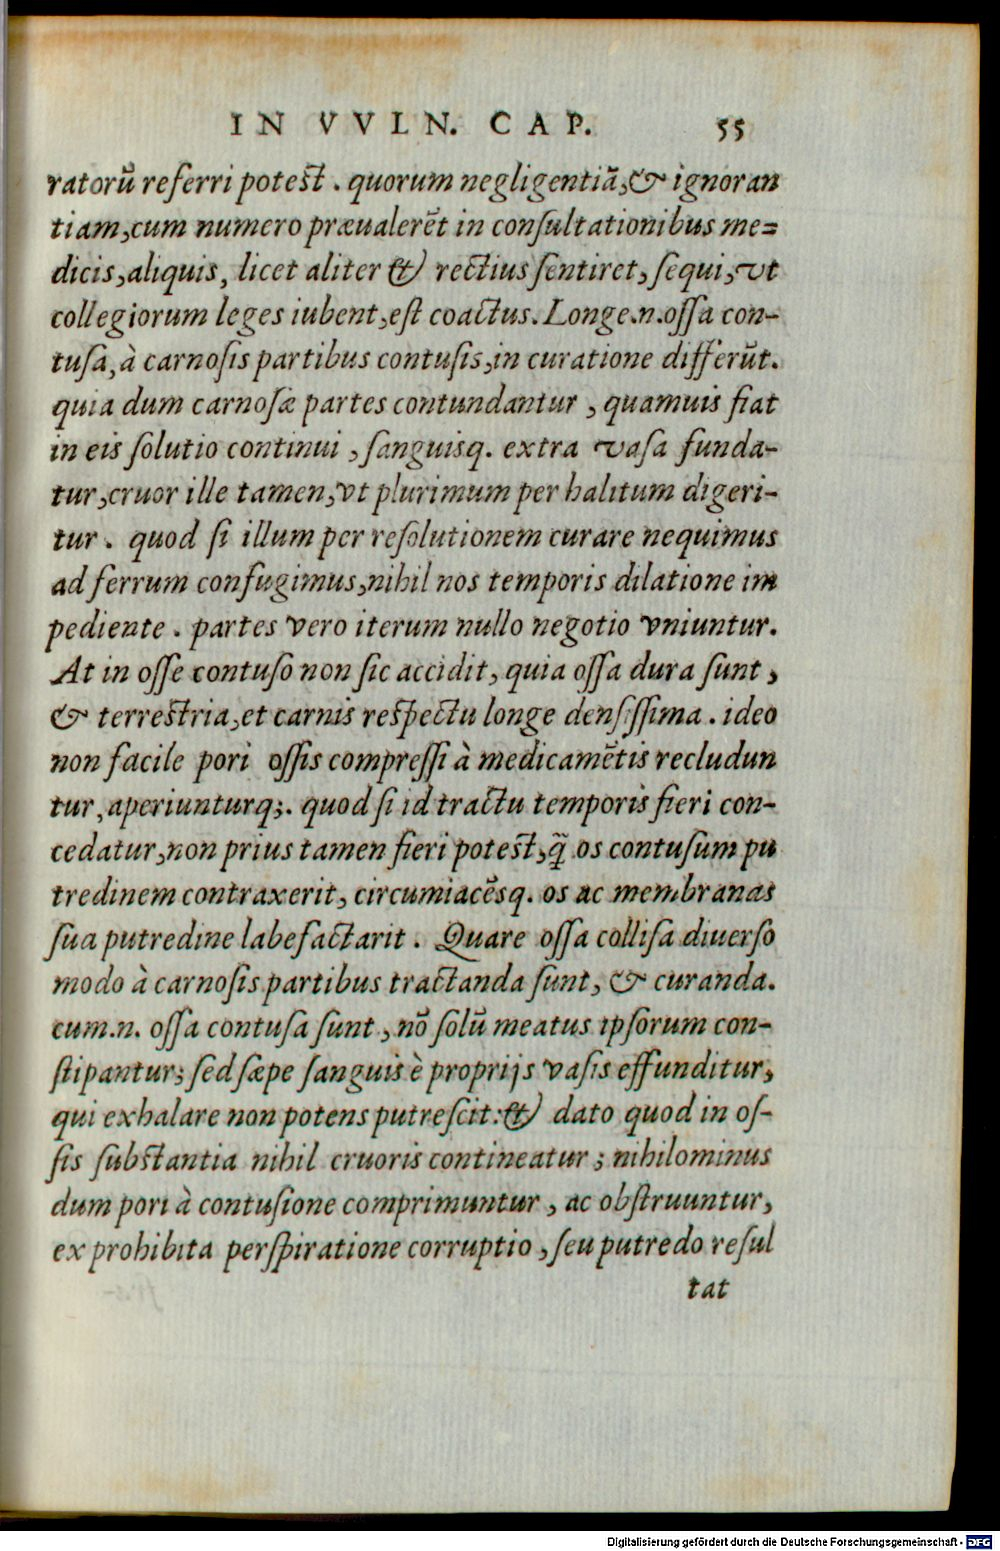 IN VVLN. CAP. 55
ratorũ referri potest. quorum negligentiã, & ignoran
tiam, cum numero præualerẽt in consultationibus me=
dicis, aliquis, licet aliter & rectius sentiret, sequi, vt
collegiorum leges iubent, est coactus. Longe.n.ossa con-
tusa, à carnosis partibus contusis, in curatione differũt.
quia dum carnosæ partes contundantur, quamuis fiat
in eis solutio continui, sanguisq. extra vasa funda-
tur, cruor ille tamen, vt plurimum per halitum digeri-
tur. quod si illum per resolutionem curare nequimus
ad ferrum confugimus, nihil nos temporis dilatione im
pediente. partes vero iterum nullo negotio vniuntur.
At in osse contuso non sic accidit, quia ossa dura sunt,
& terrestria, et carnis respectu longe densissima. ideo
non facile pori ossis compressi à medicamẽtis recludun
tur, aperiunturq;. quod si id tractu temporis fieri con-
cedatur, non prius tamen fieri potest, q̃ os contusum pu
tredinem contraxerit, circumiacẽsq. os ac membranas
sua putredine labefactarit. Quare ossa collisa diuerso
modo à carnosis partibus tractanda sunt, & curanda.
cum.n. ossa contusa sunt, nõ solũ meatus ipsorum con-
stipantur; sed sæpe sanguis è proprijs vasis effunditur,
qui exhalare non potens putrescit: & dato quod in os-
sis substantia nihil cruoris contineatur; nihilominus
dum pori à contusione comprimuntur, ac obstruuntur,
ex prohibita perspiratione corruptio, seu putredo resul
tat
Digitalisierung gefördert durch die Deutsche Forschungsgemeinschaft - DFG